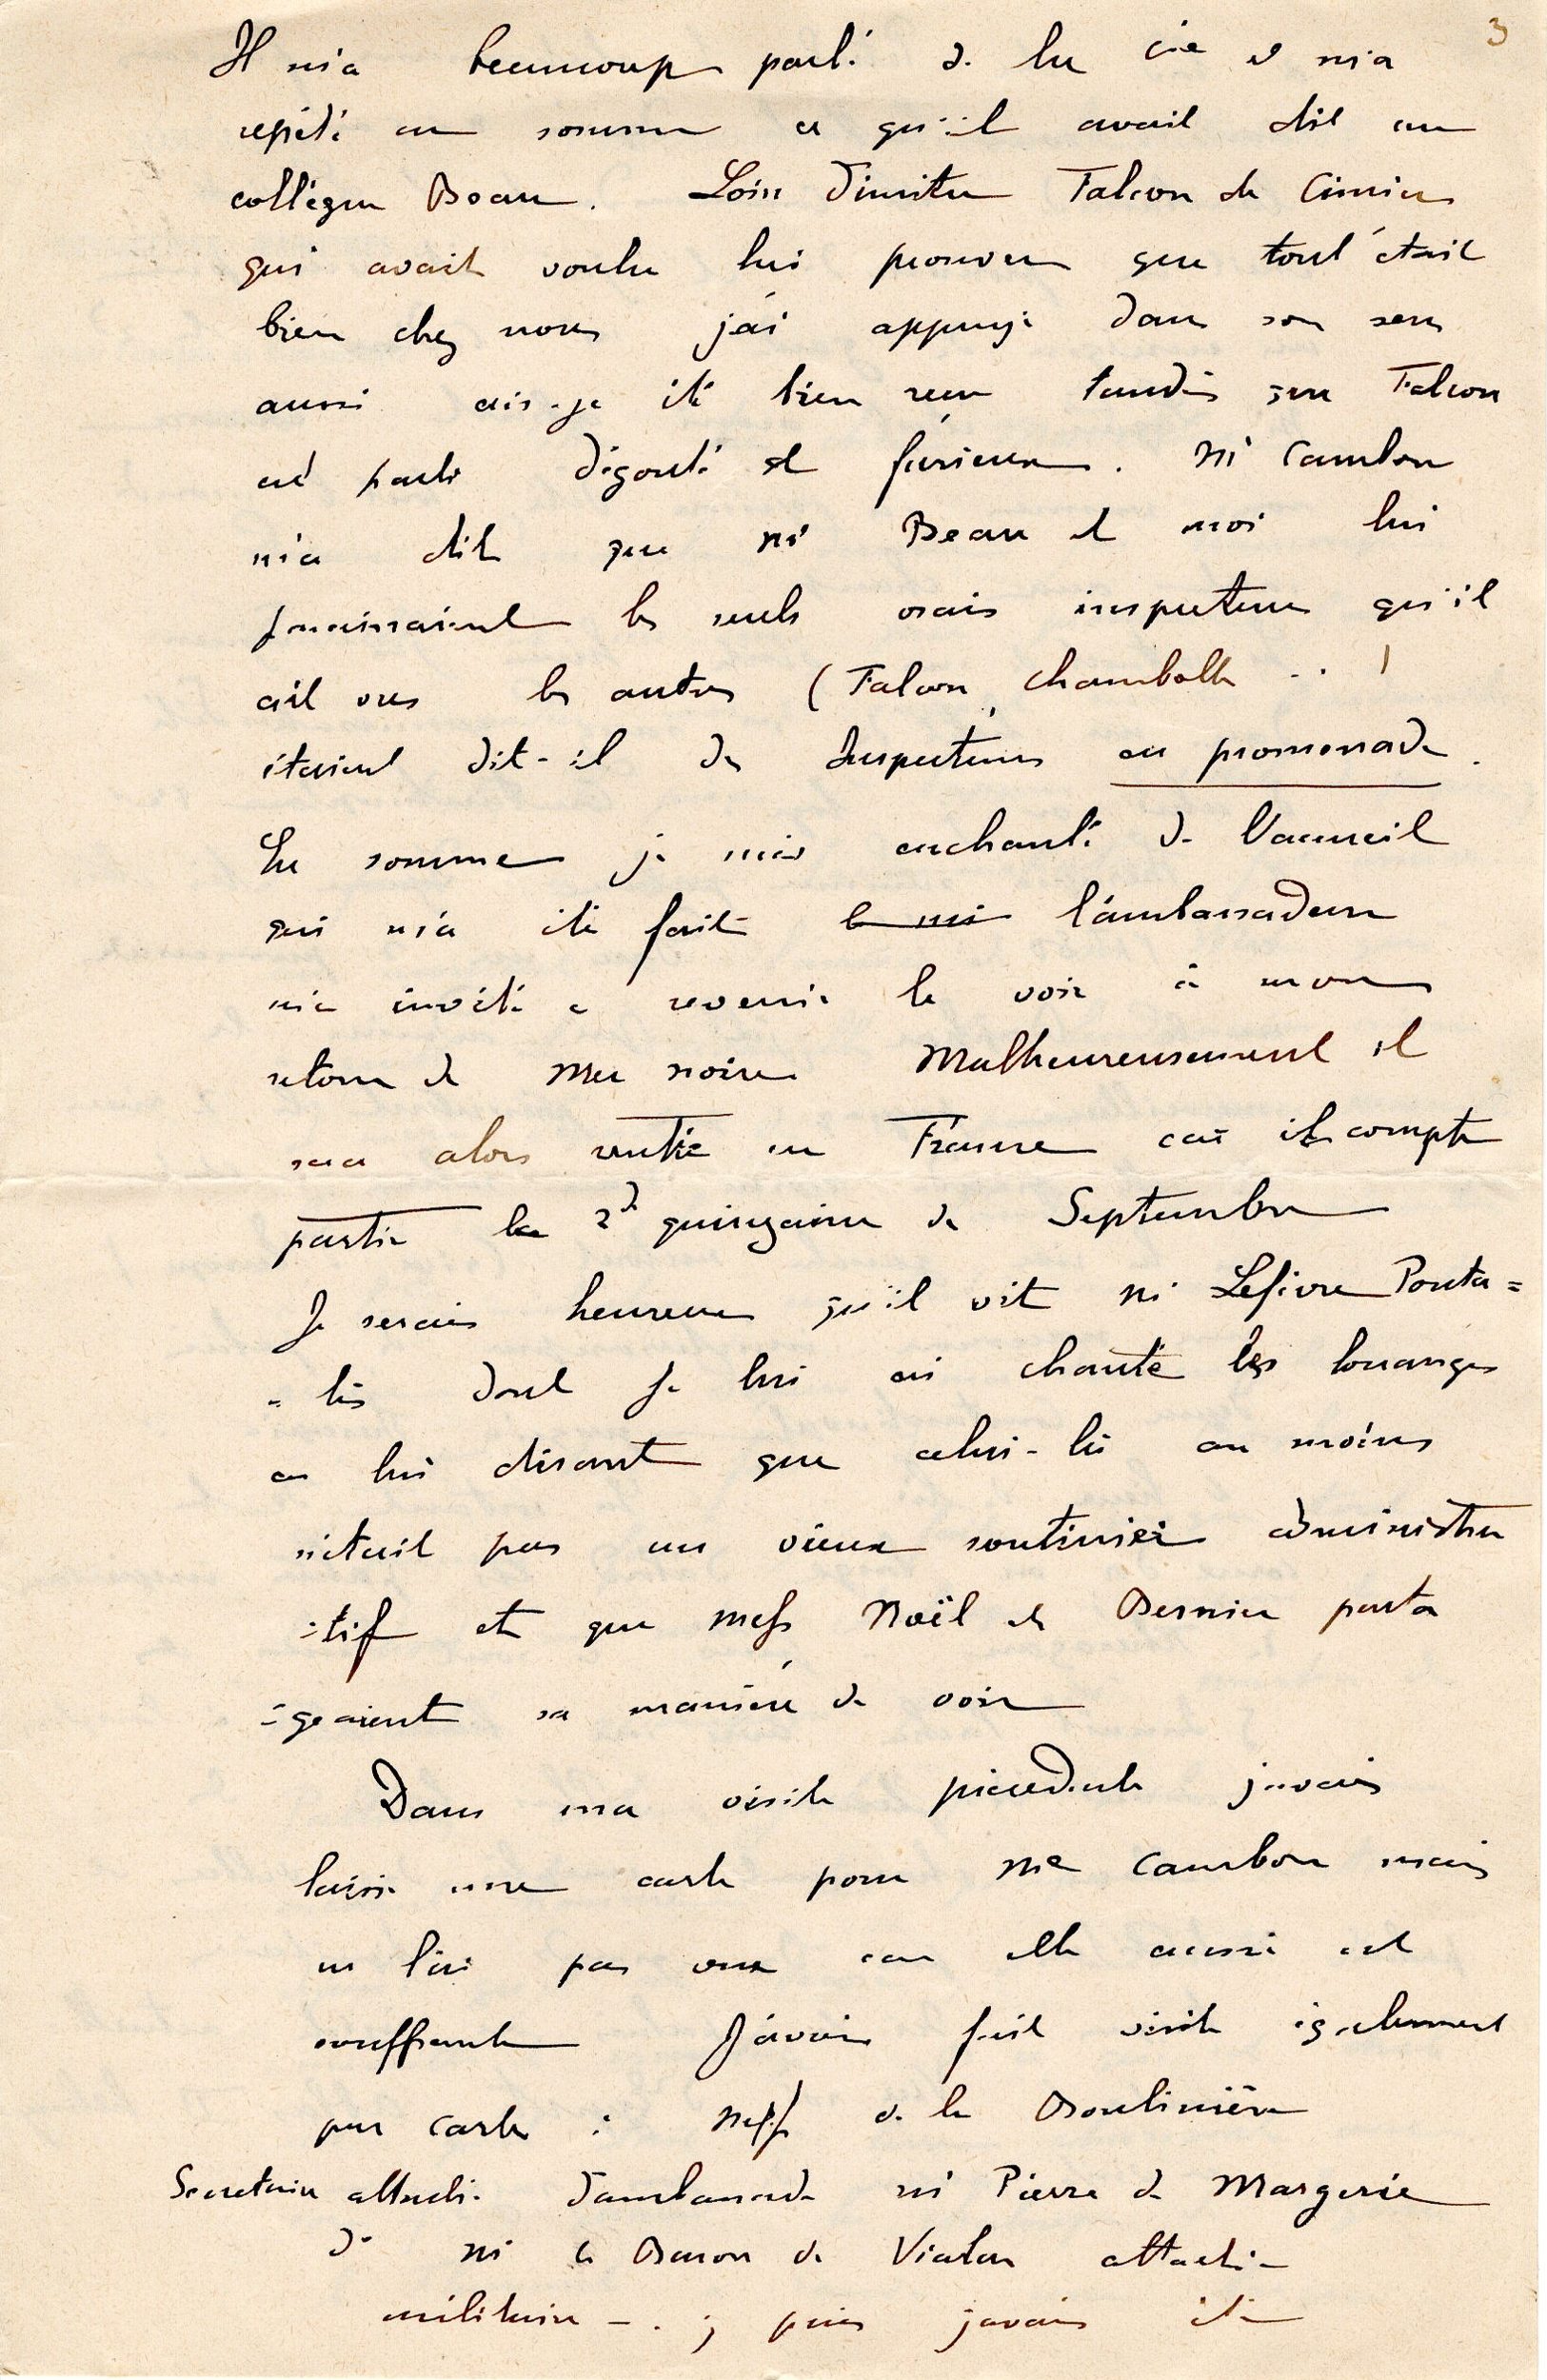 3
Il m'a beaucoup parlé de la Cie et m'a
répété en somme ce qu'il avait dit au
collègue Beau. Loin d'imiter Falcon de Cimier
qui avait voulu lui prouver que tout était
bien chez nous j'ai appuyé dans son sens
aussi ai-je été bien reçu tandis que Falcon
est parti dégouté et furieux. Mr Cambon
m'a dit que Mr Beau et moi lui
paraissaient les seuls vrais inspecteurs qu'il
ait vus les autres (Falcon, Chambolle ..)
étaient dit-il des Inspecteurs en promenade.
En somme je suis enchanté de l'accueil
qui m'a été fait l'ambassadeur
m'a invité à revenir le voir à mon
retour de Mer noire. Malheureusement il
sera alors rentré en France car il compte
partir la 2de quinzaine de Septembre
Je serais heureux qu'il vit Mr Lefèvre Ponta=
=lis dont je lui ai chanté les louanges
en lui disant que celui-là au moins
n'était pas un vieux routinier administra
=tif et que Mess Noël et Bernier parta
=geaient sa manière de voir
Dans ma visite précédente j'avais
laissé une carte pour Me Cambon mais
ne l'ai pas vue car elle aussi est
souffrante J'avais fait visite également
par carte à Mess de la Boulinière
Secretaire attaché d'ambassade Mr Pierre de Margerie
do Mr le Baron de Vialar attaché
militaire - . ; puis j'avais été